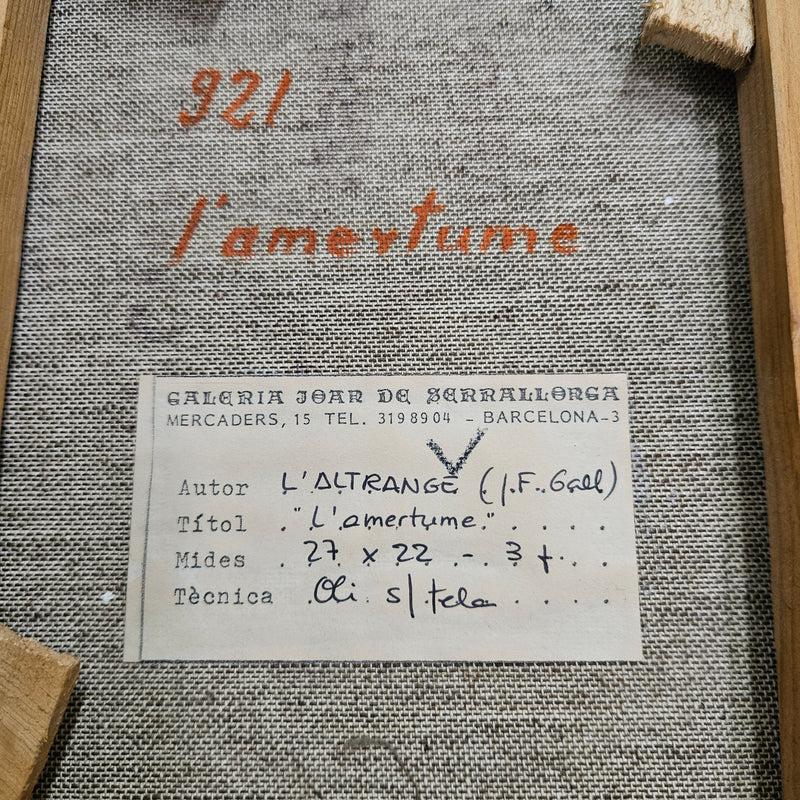 921
l'amertume
GALERIA JOAN DE SERRALLONGA
MERCADERS, 15 TEL. 3198904 - BARCELONA-3
Autor L'ALTRANGE (J.F. Gall)
Títol "L'amertume"
Mides 27 x 22 - 3 f.
Tècnica Oli s/ tela